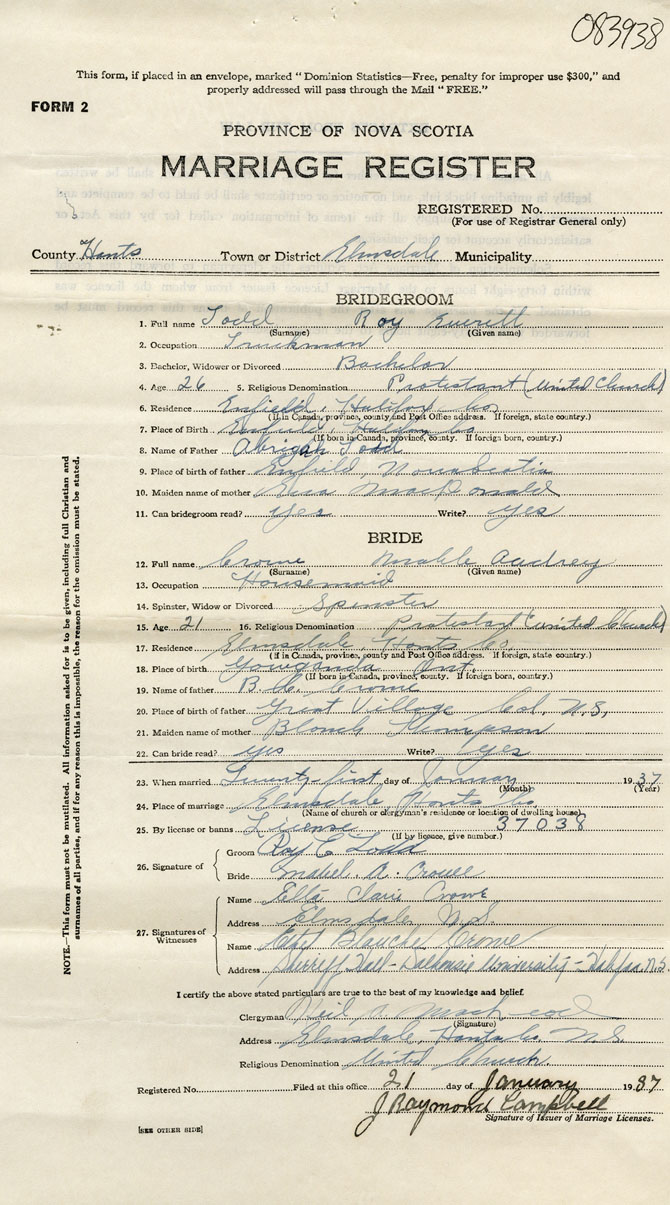 083938
This form, if placed in an envelope, marked "Dominion Statistics—Free, penalty for improper use $300," and
properly addressed will pass through the Mail "FREE."
FORM 2
PROVINCE OF NOVA SCOTIA
MARRIAGE REGISTER
REGISTERED No.
(For use of Registrar General only)
County of Hants Town or District Elmsdale Municipality
BRIDEGROOM
1. Full name Todd Roy Everett
(Surname) (Given name)
2. Occupation Truckman
3. Bachelor, Widower or Divorced Bachelor
4. Age 26 5. Religious Denomination Protestant (United Church)
6. Residence Enfield, Halifax Co.
(If in Canada, province, county and Post Office address. If foreign, state country.)
7. Place of Birth Enfield, Halifax Co
(If born in Canada, province, county. If foreign born, country.)
8. Name of Father Todd
9. Place of birth of father Enfield, Nova Scotia
10. Maiden name of mother MacDonald
11. Can bridegroom read? yes Write? yes
BRIDE
12. Full name Crowe Audrey
(Surname) (Given name)
13. Occupation Housemaid
14. Spinster, Widow or Divorced Spinster
15. Age 21 16. Religious Denomination Protestant (United Church)
17. Residence Elmsdale, Hants Co.
(If in Canada, province, county and Post Office address. If foreign, state country.)
18. Place of birth Gowganda Ont.
(If born in Canada, province, county. If foreign born, country.)
19. Name of father Crowe
20. Place of birth of father Great Village Col. N.S.
21. Maiden name of mother
22. Can bride read? yes Write? yes
23. When married Twenty-first day of January 1937
(Month) (Year)
24. Place of marriage Elmsdale, Hants Co.
(Name of church or clergyman's residence or location of dwelling house)
25. By license or banns License 37038
(If by licence, give number.)
26. Signature of
Groom Roy E Todd
Bride Mabel. A. Crowe
27. Signatures of Witnesses
Name Ella Claire Crowe
Address Elmsdale N.S.
Name Blanche Crowe
Address Shirreff Hall - Dalhousie University - Halifax N.S.
I certify the above stated particulars are true to the best of my knowledge and belief.
Clergyman
(Signature)
Address Elmsdale, Hants Co. N.S.
Religious Denomination United Church
Registered No. Filed at this office 21 day of January 1937
J Raymond Campbell
Signature of Issuer of Marriage Licenses.
[SEE OTHER SIDE]
NOTE.—This form must not be mutilated. All information asked for is to be given, including full Christian and
surnames of all parties, and if for any reason this is impossible, the reason for the omission must be stated.